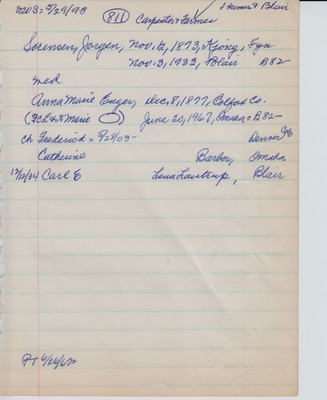 5/29/98 (811) Carpenter & Farmer Blair
Sorensen, Jorgen, Nov. 12, 1873, Kjong, Fyn
Nov. 3, 1933, Blair B82
med
Anna Marie Enger, Dec. 8, 1877, Colfax Co.
June 20, 1967, Omaha = B82-
ch. Frederick = 9/28/03- Denver
Catherine Barber, Omaha
12/12/04 Carl E Lena Lautrup, Blair
PT. 6/24/67